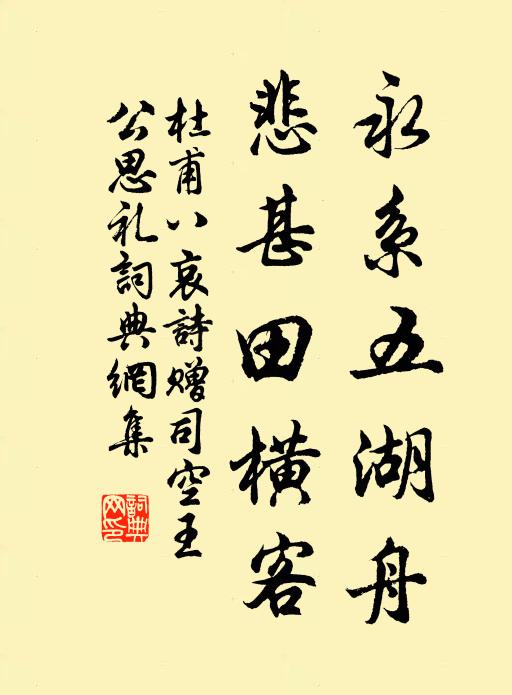 永系五湖舟
悲甚田橫客
杜甫八哀詩贈司空王
公思礼詞典網集
詞典
网印